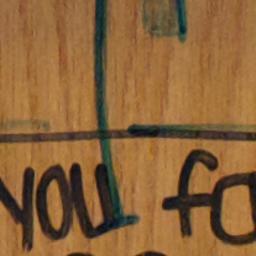 you fo